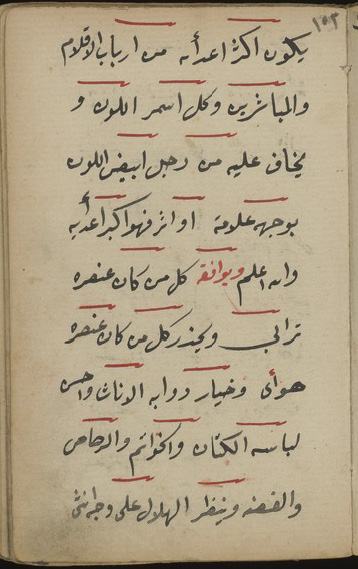 ١٥٢
يكون اكثر اعدائه من ارباب الاقلام
والمباشرين وكل اسمر اللون و
يخاف عليه من رجل ابيض اللون
بوجهه علامة او اثر فهو اكبر اعدائه
والله اعلم ويوافقه كل من كان عنصره
ترابي ويحذر كل من كان عنصره
هوأي وخيار دوابه الاناث واحسن
لباسه الكتان والخواتم والرصاص
والفضه وينظر الهلال على وجه انثى